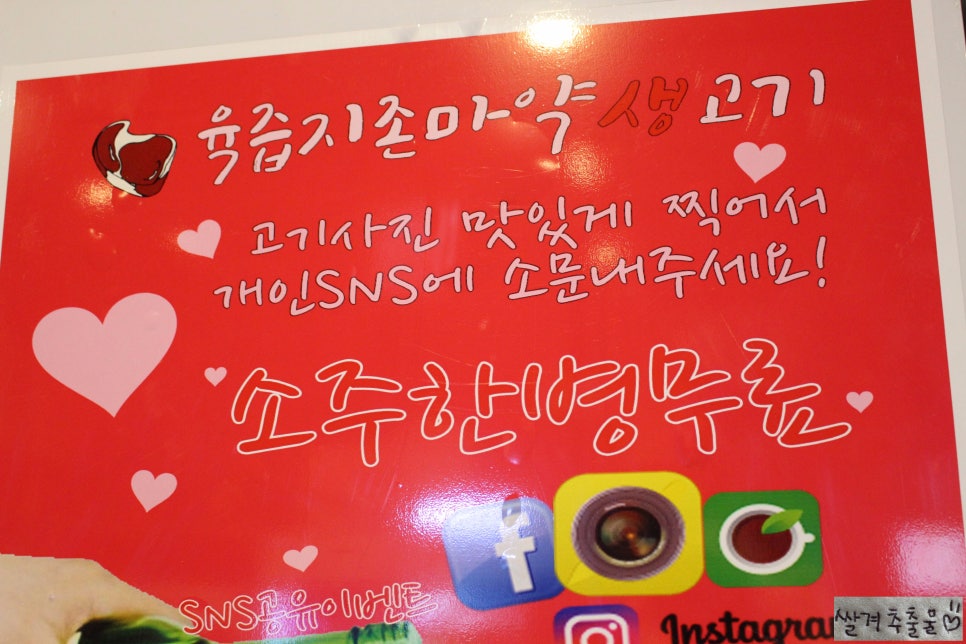 육즙지존마약생고기
고기사진 맛있게 찍어서
개인SNS에 소문내주세요!
소주한병무료
f
SNS공유이벤트
Instagram
쌀겨추출물